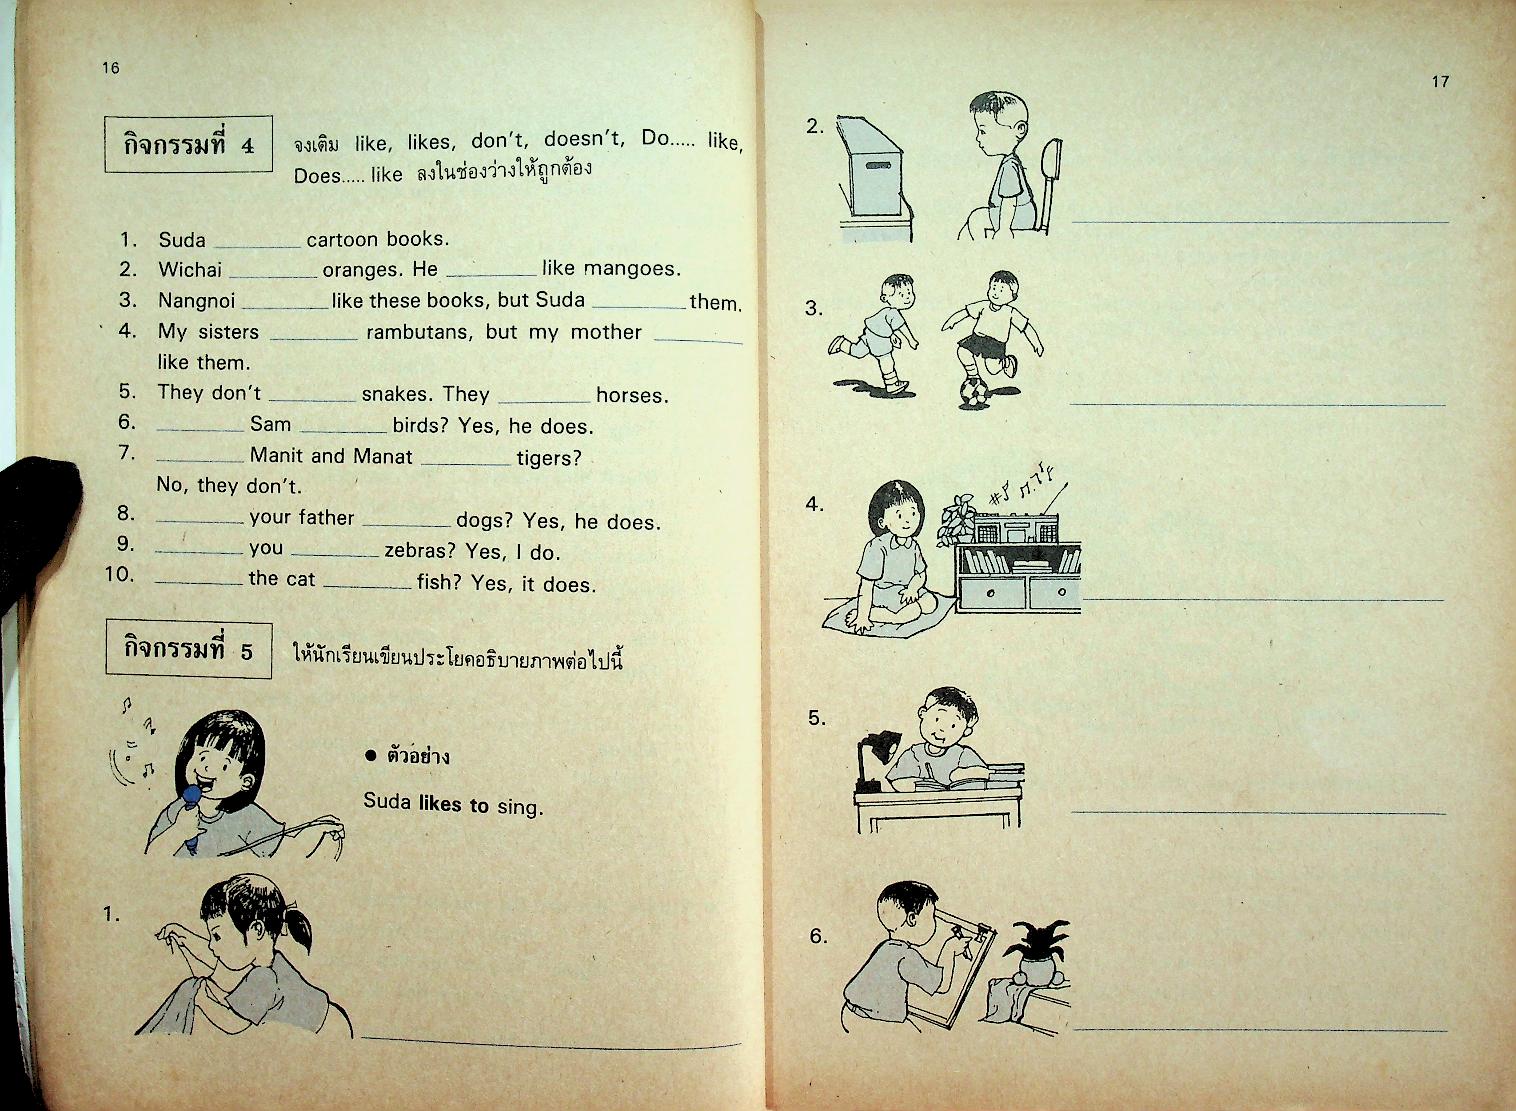 16
กิจกรรมที่ 4
จงเติม like, likes, don't, doesn't, Do..... like,
Does..... like ลงในช่องว่างให้ถูกต้อง
1. Suda ________ cartoon books.
2. Wichai ________ oranges. He ________ like mangoes.
3. Nangnoi ________ like these books, but Suda ________ them.
4. My sisters ________ rambutans, but my mother ________
like them.
5. They don't ________ snakes. They ________ horses.
6. ________ Sam ________ birds? Yes, he does.
7. ________ Manit and Manat ________ tigers?
No, they don't.
8. ________ your father ________ dogs? Yes, he does.
9. ________ you ________ zebras? Yes, I do.
10. ________ the cat ________ fish? Yes, it does.
กิจกรรมที่ 5
ให้นักเรียนเขียนประโยคอธิบายภาพต่อไปนี้
● ตัวอย่าง
Suda likes to sing.
1.
17
2.
3.
4.
5.
6.